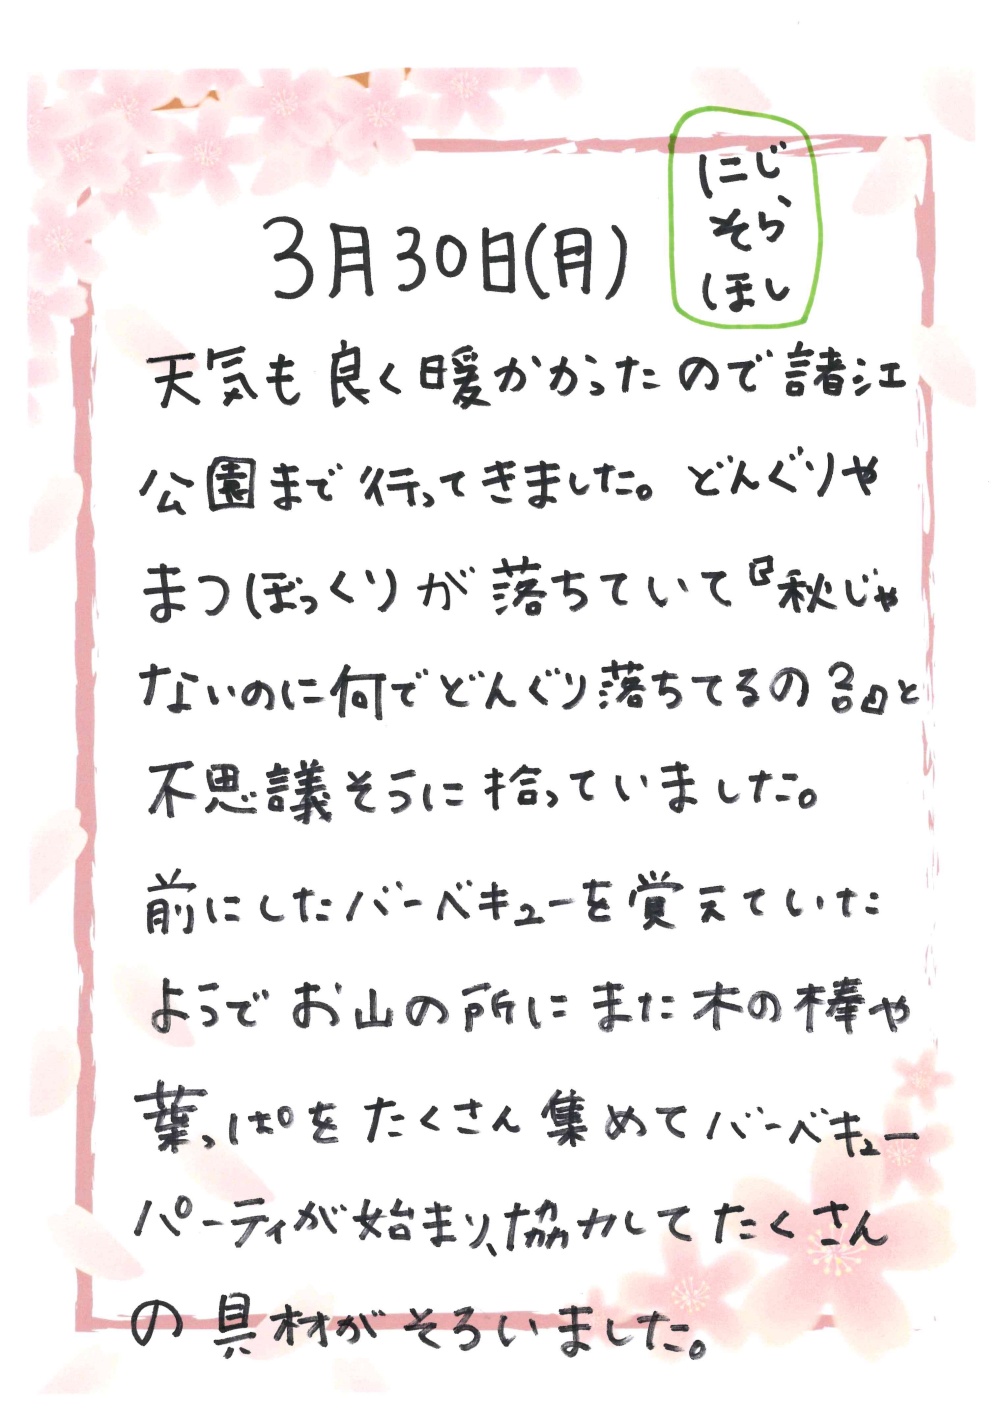 にじ
そら
ほし
3月30日(月)
天気も良く暖かかったので諸江
公園まで行ってきました。どんぐりや
まつぼっくりが落ちていて『秋じゃ
ないのに何でどんぐり落ちてるの??』と
不思議そうに拾っていました。
前にしたバーベキューを覚えていた
ようでお山の所にまた木の棒や
葉っぱをたくさん集めてバーベキュー
パーティが始まり、協力してたくさん
の具材がそろいました。